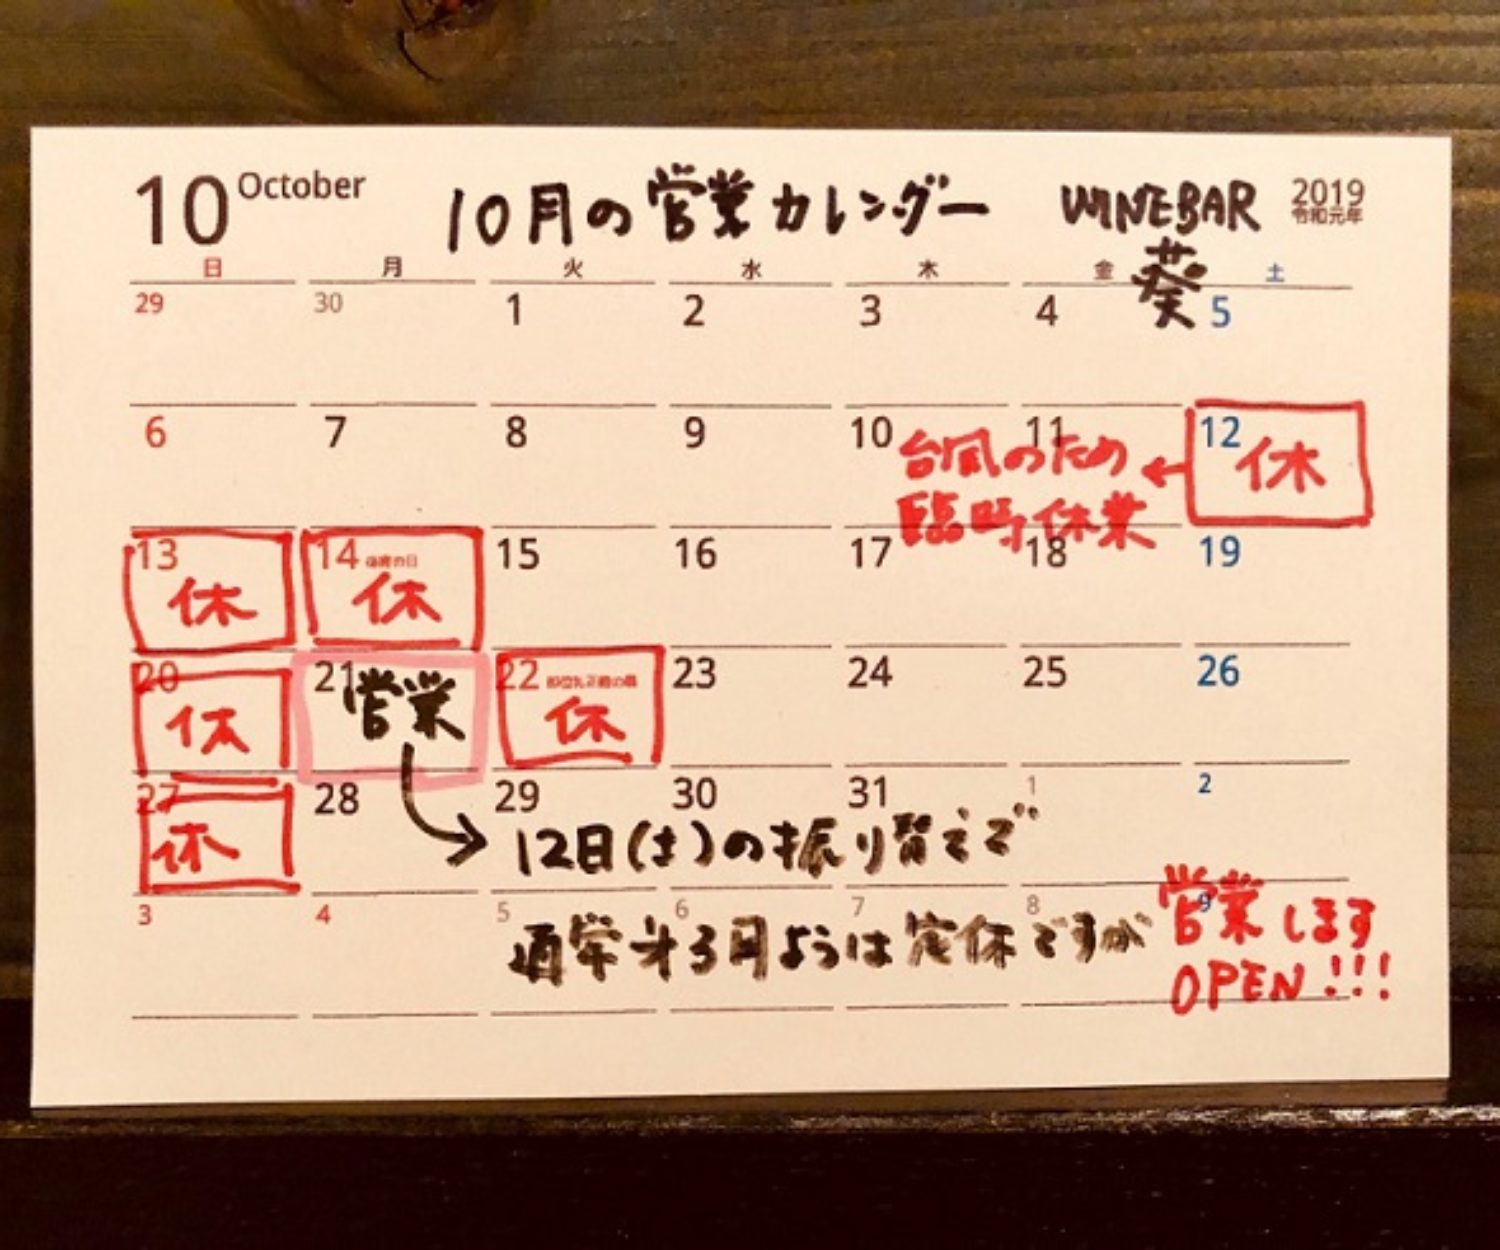 10 October 10月の営業カレンダー WINEBAR 2019
令和元年
葵
日 月 火 水 木 金 土
29 30 1 2 3 4 5
6 7 8 9 10 11 12 休
台風のため
臨時休業
13 休 14 体育の日 休 15 16 17 18 19
20 休 21 営業 22 即位礼正殿の儀 休 23 24 25 26
27 休 28 29 30 31 1 2
12日(土)の振り替えで
3 4 5 6 7 8 9
通常第3月ようは定休ですが 営業します
OPEN!!!